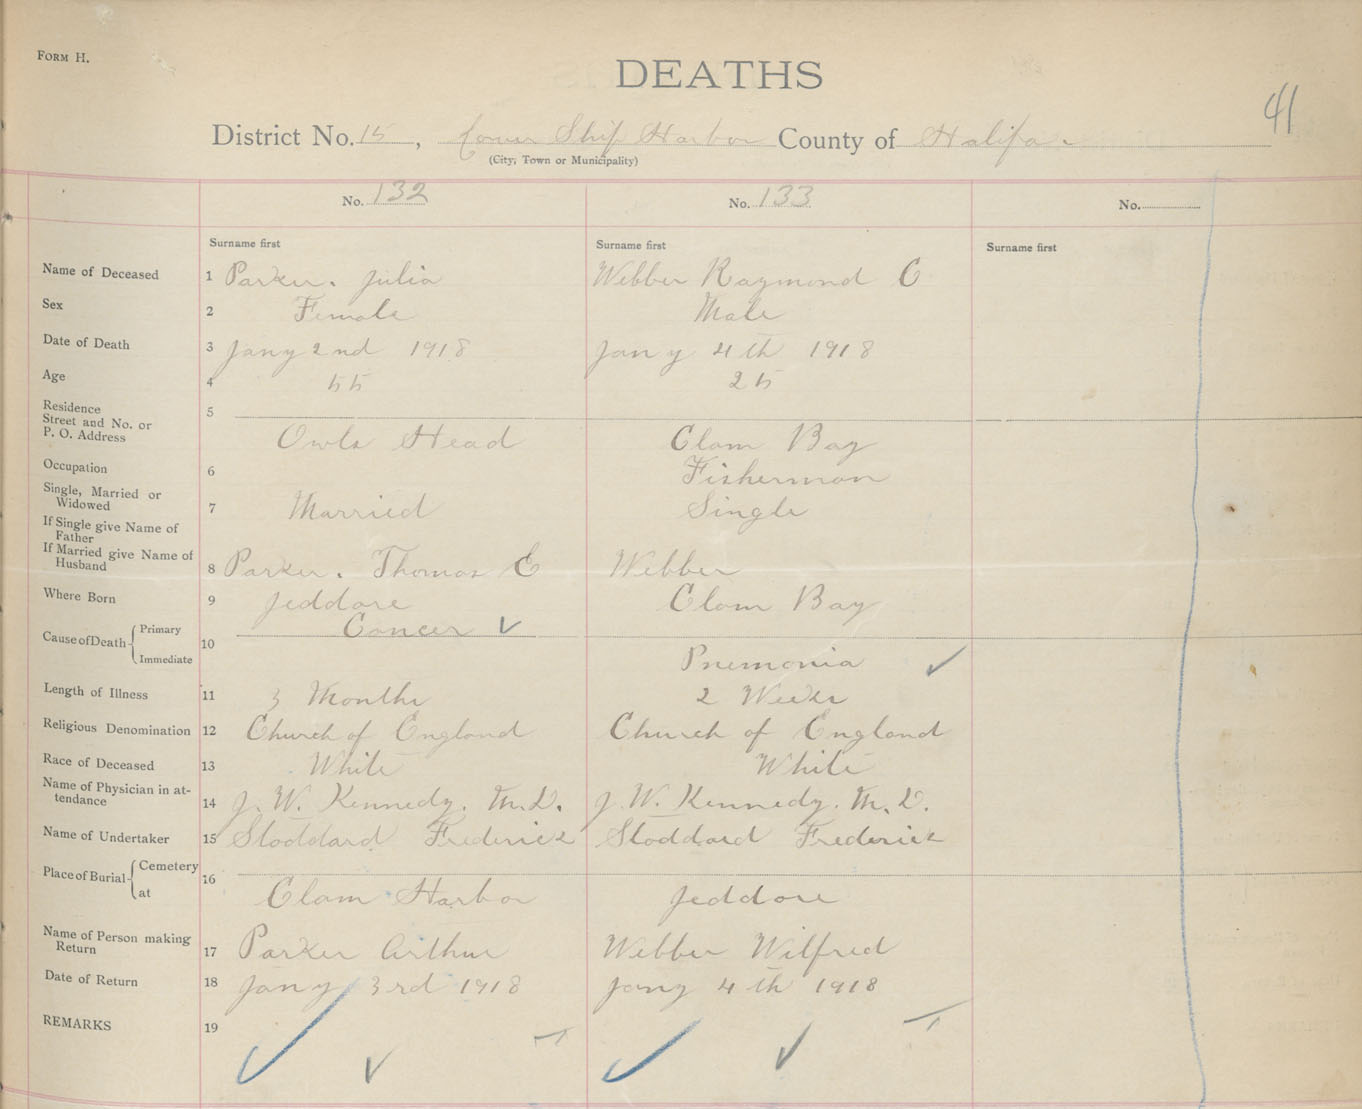 FORM H.
DEATHS
41
District No. 15, Lower Ship Harbor County of Halifax
(City, Town or Municipality)
No. 132 No. 133 No.
Surname first Surname first Surname first
Name of Deceased 1 Parker. Julia Webber Raymond C
Sex 2 Female Male
Date of Death 3 Jany 2nd 1918 Jany 4th 1918
Age 4 55 25
Residence
Street and No. or
P. O. Address 5 Owls Head Clam Bay
Occupation 6 Fisherman
Single, Married or
Widowed 7 Married Single
If Single give Name of
Father
If Married give Name of
Husband 8 Parker. Thomas E Webber
Where Born 9 Jeddore Clam Bay
Cause of Death Primary 10 Cancer
Immediate Pnemonia
Length of Illness 11 3 Months 2 Weeks
Religious Denomination 12 Church of England Church of England
Race of Deceased 13 White White
Name of Physician in at-
tendance 14 J. W. Kennedy. M.D. J. W. Kennedy. M.D.
Name of Undertaker 15 Stoddard Frederick Stoddard Frederick
Place of Burial Cemetery 16
at Clam Harbor Jeddore
Name of Person making
Return 17 Parker Arthur Webber Wilfred
Date of Return 18 Jany 3rd 1918 Jany 4th 1918
REMARKS 19